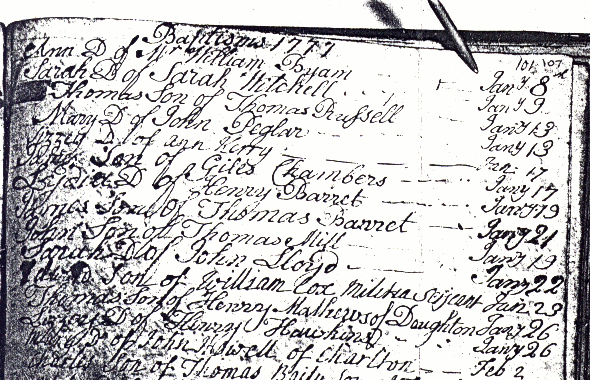 101. 107
Baptisms 1777
Ann D of Mr William Byam Jany 8
Sarah D of Sarah Witchell Jany 9
Thomas Son of Thomas Russell Jany 13
Mary D of John Peglar Jany 13
D of Ann Jan 17
James Son of Giles Chambers Jany 17
D of Henry Barret Jany 19
James Son of Thomas Barret Jany 21
John Son of Thomas Mill Jany 19
Sarah D of John Lloyd Jany 22
Son of William Cox Militia Serjeant Jan 23
Thomas Son of Henry Mathews of Doughton Jany 26
D of Henry Hawkins Jany 26
D of John of Charlton Feb 2
Son of Thomas